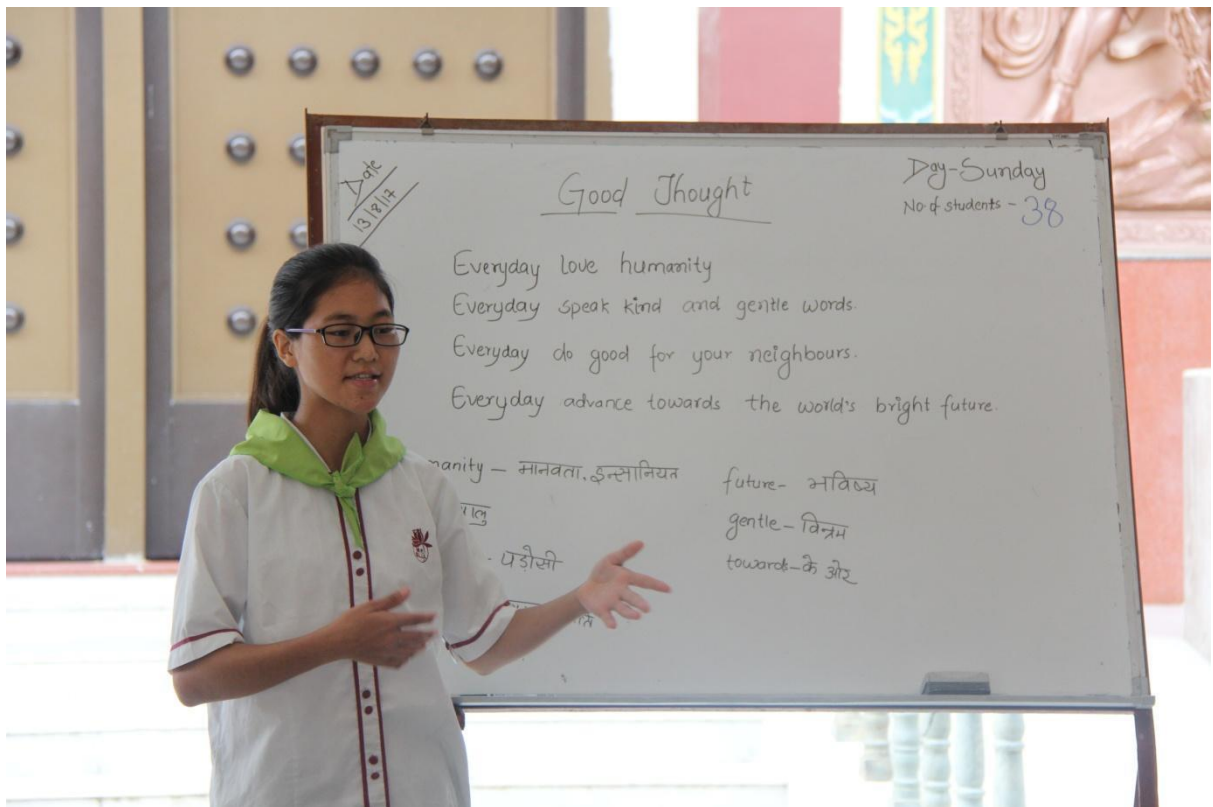 Date
13/8/17
Good Thought
Day-Sunday
No of students - 38
Everyday love humanity
Everyday speak kind and gentle words.
Everyday do good for your neighbours.
Everyday advance towards the world's bright future.
manity — मानवता, इन्सानियत
future - भविष्य
gentle - विन्रम
- पड़ोसी
towards - के ओर